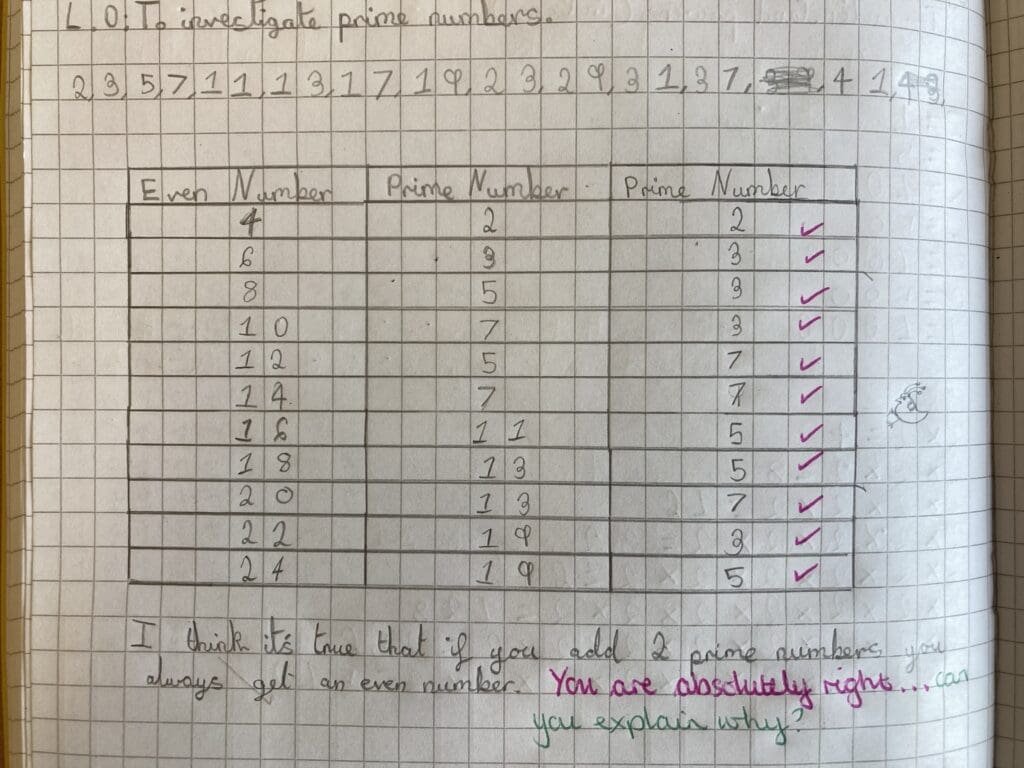 L.O: To investigate prime numbers.
2,3,5,7,11,13,17,19,23,29,31,37, 41,43
Even Number Prime Number Prime Number
4 2 2 ✓
6 3 3 ✓
8 5 3 ✓
10 7 3 ✓
12 5 7 ✓
14 7 7 ✓
16 11 5 ✓
18 13 5 ✓
20 13 7 ✓
22 19 3 ✓
24 19 5 ✓
I think its true that if you add 2 prime numbers you
always get an even number. You are absolutely right... can
you explain why?